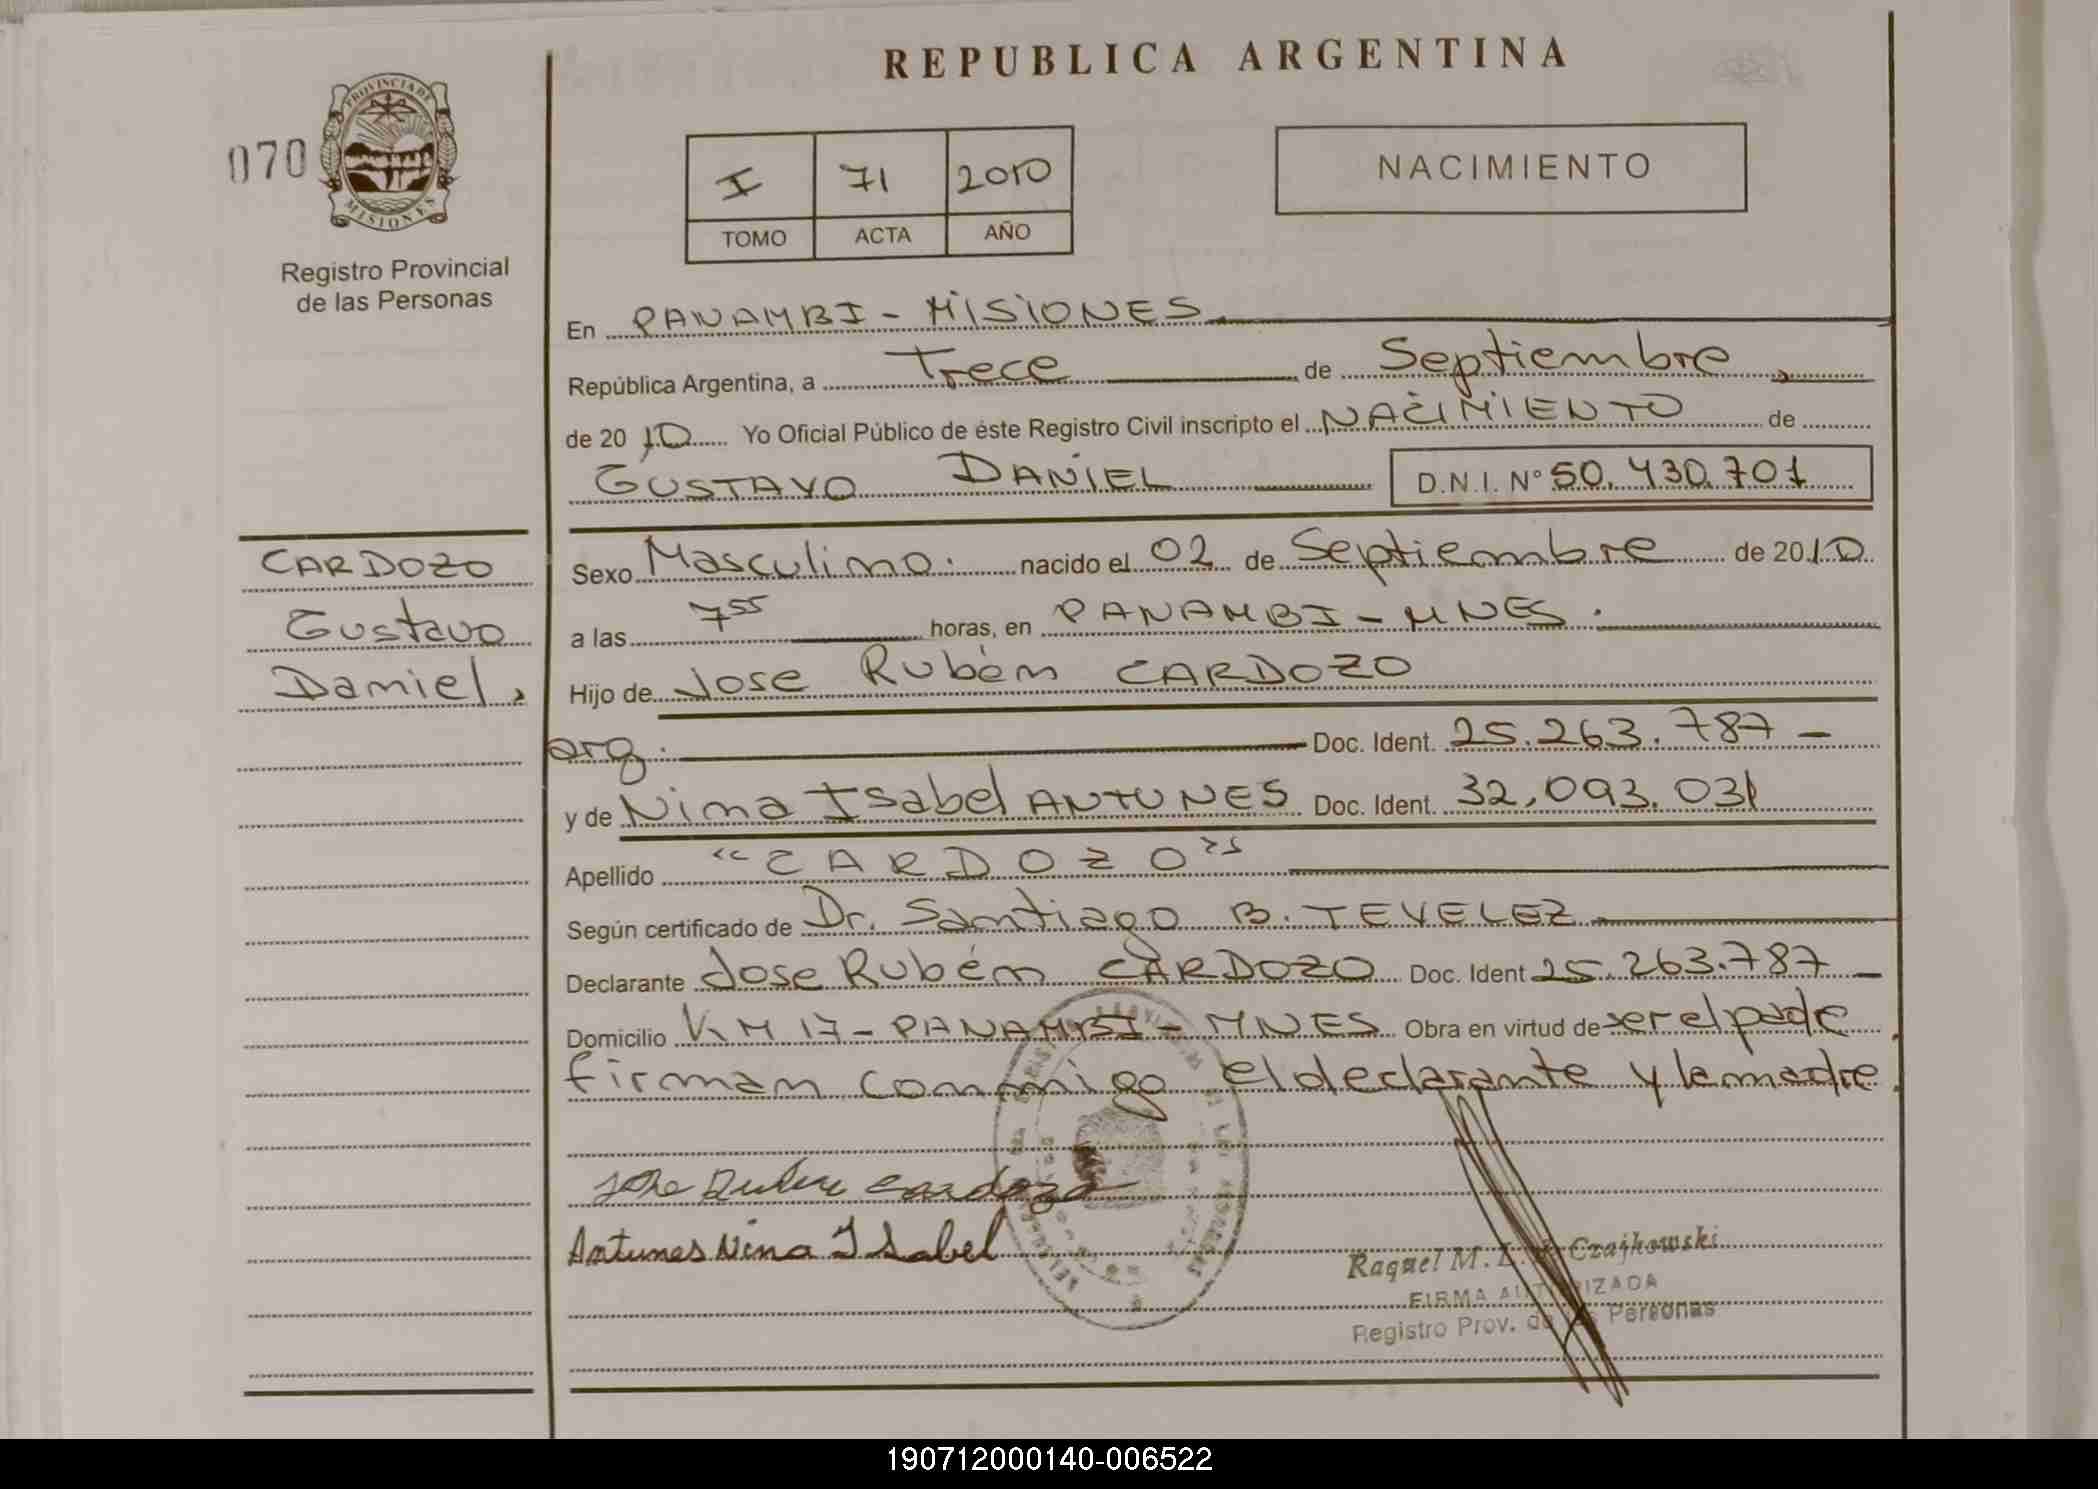 REPUBLICA ARGENTINA
070
PROVINCIA DE
MISIONES
Registro Provincial
de las Personas
I 71 2010
TOMO ACTA AÑO
NACIMIENTO
En PANAMBI - MISIONES
República Argentina, a Trece de Septiembre,
de 2010 Yo Oficial Público de éste Registro Civil inscripto el NACIMIENTO de
GUSTAVO DANIEL D.N.I. Nº 50.430.701
CARDOZO
Gustavo
Daniel,
Sexo Masculino. nacido el 02 de Septiembre de 2010
a las 7 55 horas, en PANAMBI - MNES.
Hijo de Jose Rubén CARDOZO
arg. Doc. Ident. 25.263.787 -
y de Nina Isabel ANTUNES Doc. Ident. 32,093.031
Apellido "CARDOZO"
Según certificado de Dr. Santiago B. TEVELEZ
Declarante Jose Rubén CARDOZO Doc. Ident 25.263.787 -
Domicilio KM 17 - PANAMBI - MNES Obra en virtud de ser el padre
firman conmigo el declarante y la madre.
Jose Ruben Cardozo
Antunes Nina Isabel
Raquel M. L. Czajkowski
FIRMA AUTORIZADA
Registro Prov. de Personas
190712000140-006522